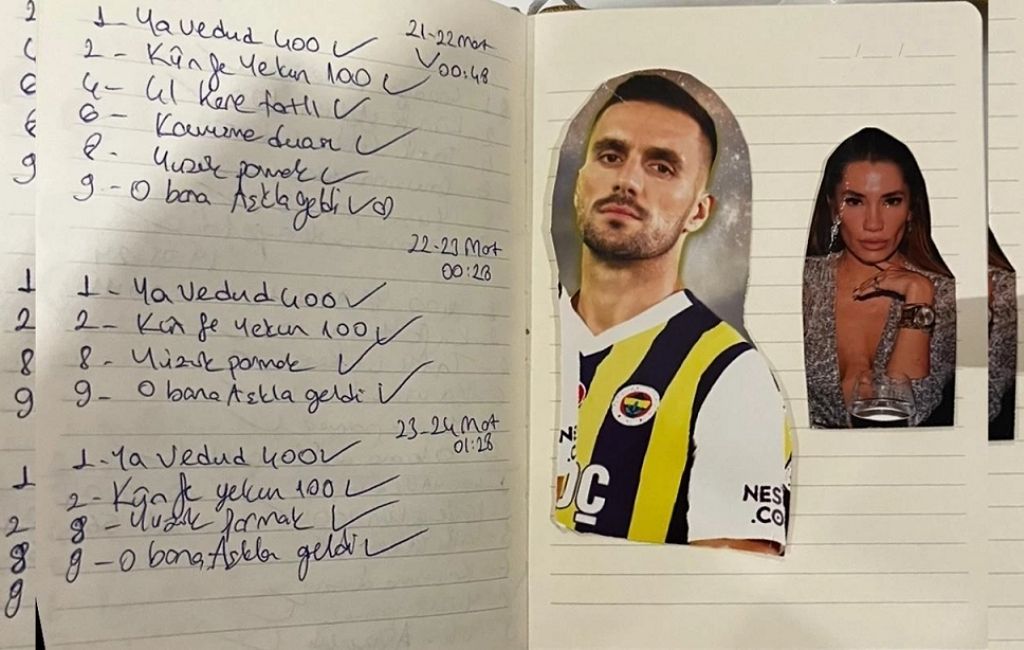 1- Ya vedud 400 ✓
21-22 Mart
✓ 00:48
2 - Kün fe yekün 100 ✓
4- 41 kere fatlı ✓
6 - Kavuşma duası ✓
8 - Yüzük parmak ✓
9 - O bana Aşkla geldi ✓
22-23 Mart
00:28
1 - Ya Vedud 400 ✓
2 - Kün fe yekün 100 ✓
8 - Yüzük parmak ✓
9 - O bana Aşkla geldi ✓
23-24 Mart
01:28
1- Ya Vedud 400 ✓
2 - Kün fe yekün 100 ✓
8 - Yüzük parmak ✓
9 - O bana Aşkla geldi ✓
2
6
9
1
2
8
9
1
2
8
9
NES
.CO